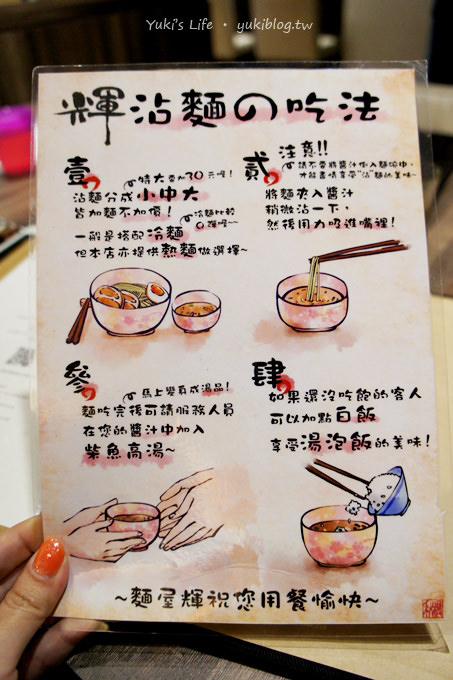 Yuki's Life • yukiblog.tw
輝沾麵の吃法
壹
特大要加30元喔!
沾麵分成小中大
皆加麵不加價!
冷麵比較
Q彈喔~
一般是搭配冷麵
但本店亦提供熱麵做選擇~
貳
注意!!
請不要將醬汁倒入麵碗中,
才能盡情享受"沾"麵的美味~
將麵夾入醬汁
稍微沾一下,
然後用力吸進嘴裡!
參
馬上變身成湯品!
麵吃完後可請服務人員
在您的醬汁中加入
柴魚高湯~
肆
如果還沒吃飽的客人
可以加點白飯
享受湯泡飯的美味!
~麵屋輝祝您用餐愉快~